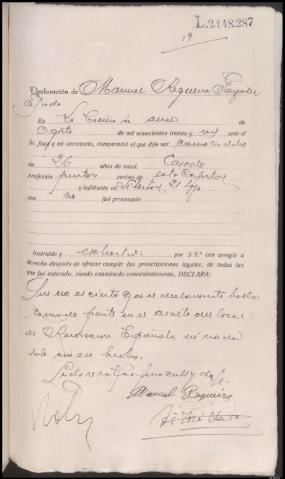 L.2148.287
19
Declaración de Manuel Regueira
En La Coruña a de
Agosto de mil novecientos treinta y seis, ante el
Sr. Juez y mi secretario, compareció el que dijo ser como va dicho
de 26 años de edad,
profesión pintor vecino de esta Capital
y habitante en
que no fué procesado
Instruído y exhortado por S Sª con arreglo a
derecho después de ofrecer cumplir las prescripciones legales, de todas las
que fué enterado, siendo examinado convenientemente, DECLARA:
Que no es cierto que el declarante haya
tomado parte en el asalto del local
de Renovación Española ni nada
sabe sobre ese hecho.
Leido ratifica firma con SSª y doy fe.
Manuel Regueira